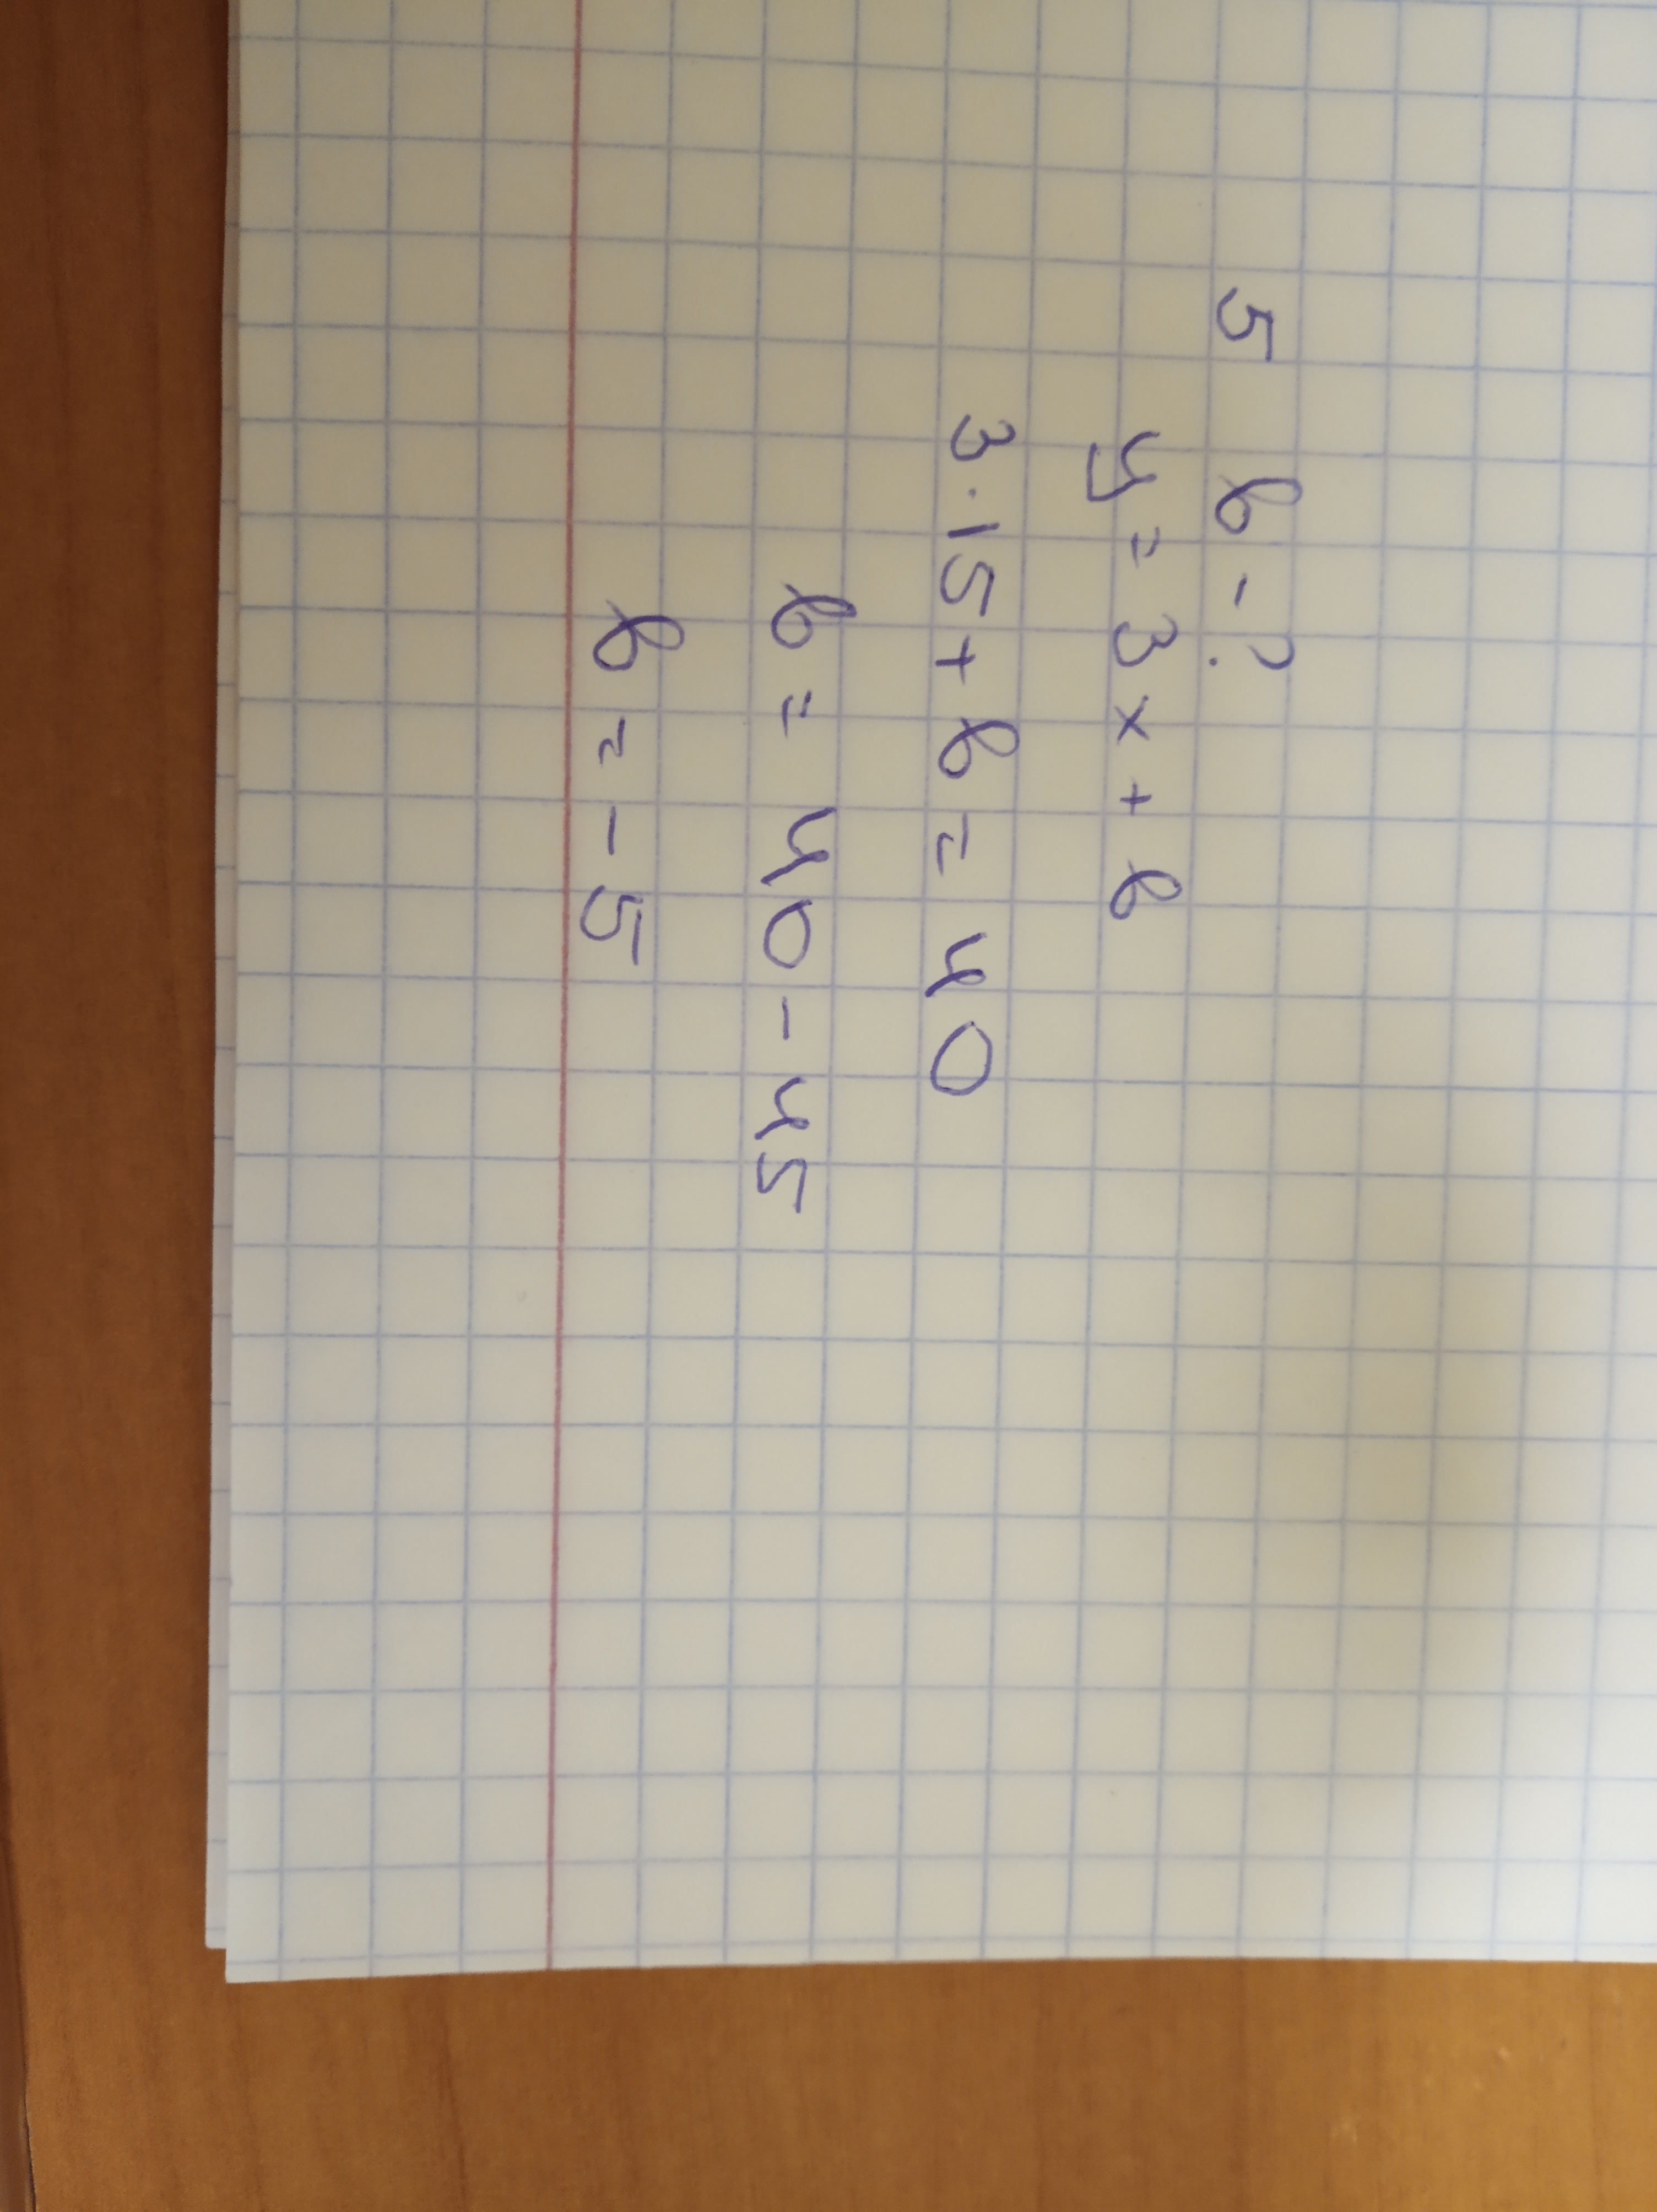 5 в - ?
y = 3x + в
3 · 15 + в = 40
в = 40 - 45
в = - 5